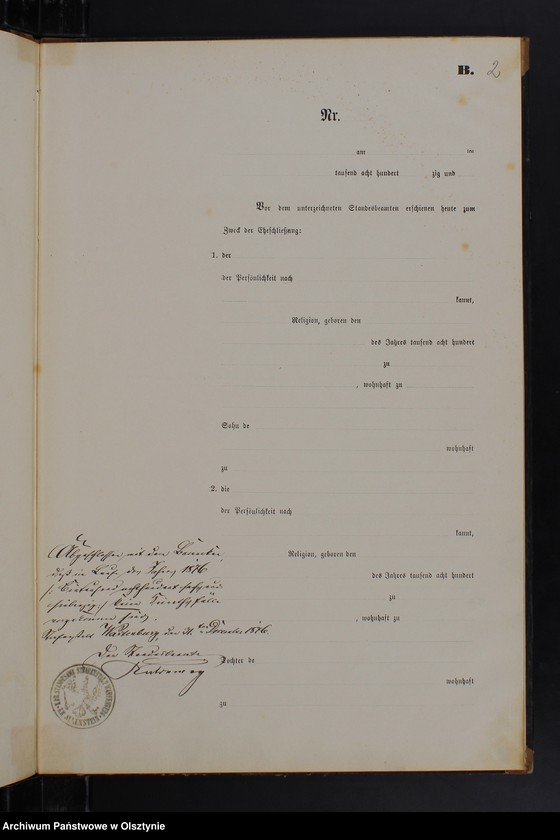 B. 2
Nr.
am im
tausend acht hundert zig und
Vor dem unterzeichneten Standesbeamten erschienen heute zum
Zweck der Eheschließung:
1. der
der Persönlichkeit nach
kannt,
Religion, geboren den
des Jahres tausend acht hundert
zu
, wohnhaft zu
Sohn de
wohnhaft
zu
2. die
der Persönlichkeit nach
kannt,
Religion, geboren den
des Jahres tausend acht hundert
zu
, wohnhaft zu
Tochter de
wohnhaft
zu
Abgeschlossen mit dem Bemerken,
daß im Laufe des Jahres 1876
vorgekommen sind.
Wartenburg, den 31. ten Dezember 1876.
Der Standesbeamte
Archiwum Państwowe w Olsztynie